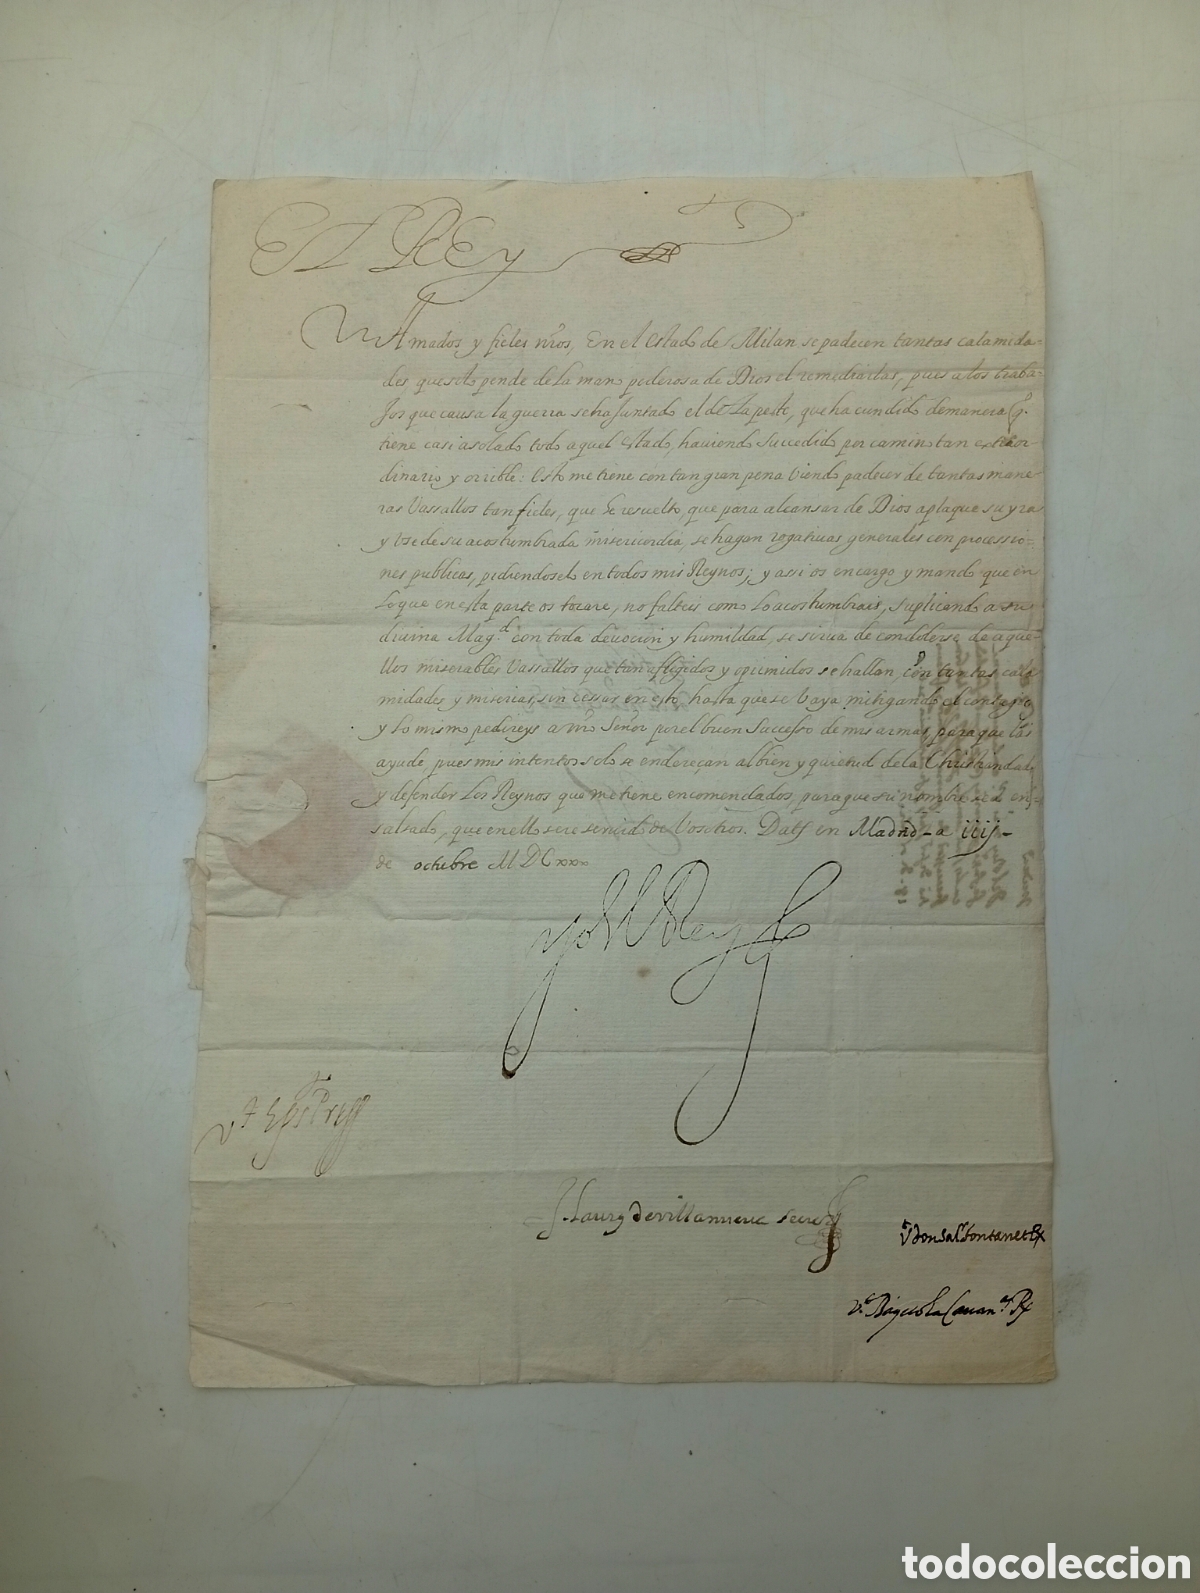 El Rey
Amados y fieles nr̃os, En el Estado de Milan se padecen tantas calamida-
des que solo pende de la mano poderosa de Dios el remediarlas, pues a los traba-
jos que causa la guerra se ha juntado el de La peste, que ha cundido de manera q̃.
tiene casi asolado todo aquel Estado, haviendo succedido por camino tan extraor-
dinario y orrible: Esto me tiene con tan gran pena viendo padecer de tantas mane-
ras Vassallos tan fieles, que he resuelto, que para alcansar de Dios aplaque su yra
y use de su acostumbrada misericordia, se hagan rogativas generales con processio-
nes publicas, pidiendoselo en todos mis Reynos; y assi os encargo y mando que en
Lo que en esta parte os tocare, no falteis como Lo acostumbrais, suplicando a su
divina Mag.d con toda devocion y humildad, se sirva de condolerse de aque-
llos miserables Vassallos que tan afligidos y oprimidos se hallan, con tantas cala-
midades y miserias, sin cessar en esto hasta que se vaya mitigando el contagio
y Lo mismo pedireys a nr̃o Señor por el buen Successo de mis armas, para que las
ayude, pues mis intentos solo se endereçan al bien y quietud de la Christiandad
y defender Los Reynos que me tiene encomendados, para que su nombre sea en-
salsado, que en ello sere servido de Vosotros. Datt en Madrid - a iiij -
de octubre MDCxxx
yo el Rey
Villanueva Secret
V.t don Sal. fontanet R
V.t Bayetola
todocoleccion